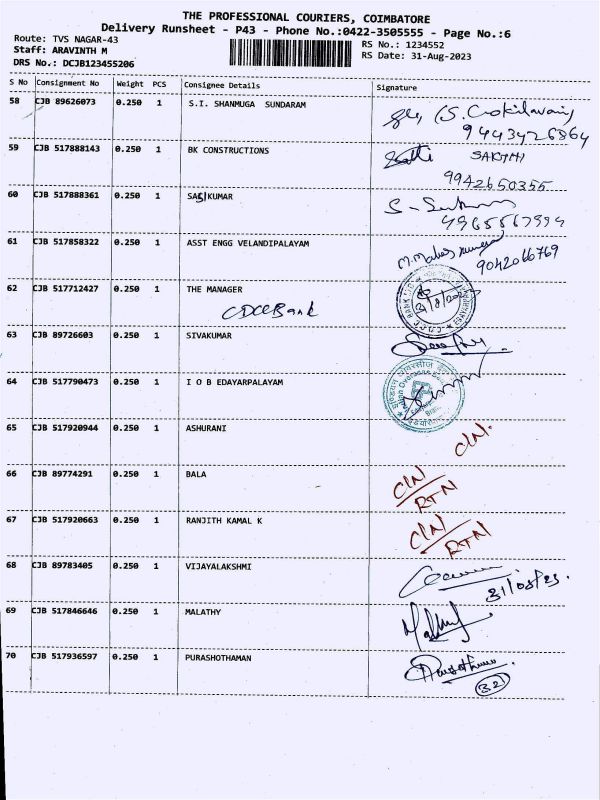 THE PROFESSIONAL COURIERS, COIMBATORE
Delivery Runsheet - P43 - Phone No.:0422-3505555 - Page No.:6
Route: TVS NAGAR-43
RS No.: 1234552
Staff: ARAVINTH M
RS Date: 31-Aug-2023
DRS No.: DCJB123455206
S No Consignment No Weight PCS Consignee Details Signature
58 CJB 89626073 0.250 1 S.I. SHANMUGA SUNDARAM
9443426864
59 CJB 517888143 0.250 1 BK CONSTRUCTIONS SAKTHI
9942650355
60 CJB 517888361 0.250 1 SASIKUMAR
61 CJB 517858322 0.250 1 ASST ENGG VELANDIPALAYAM
9042066769
62 CJB 517712427 0.250 1 THE MANAGER
CDCC Bank
63 CJB 89726603 0.250 1 SIVAKUMAR
64 CJB 517790473 0.250 1 I O B EDAYARPALAYAM
65 CJB 517920944 0.250 1 ASHURANI
CIN.
66 CJB 89774291 0.250 1 BALA
CIN
RTN
67 CJB 517920663 0.250 1 RANJITH KAMAL K
CIN
RTN
68 CJB 89783405 0.250 1 VIJAYALAKSHMI
31/08/23.
69 CJB 517846646 0.250 1 MALATHY
70 CJB 517936597 0.250 1 PURASHOTHAMAN
32